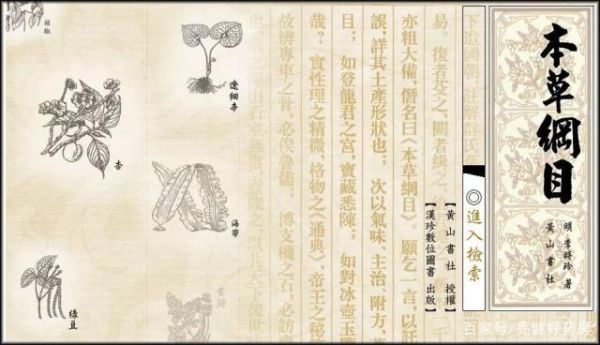 本草綱目
明 李時珍 著
黃山書社
◎進入檢索
【黃山書社 授權】
【漢珍數位圖書 出版】
易。復者芟之,闕者緝之,
亦粗大備,僭名曰《本草綱目》。願乞一言,以託
誤,詳其土產形狀也;次以氣味、主治、附方,
目;如登龍君之宮,寶藏悉陳;如對冰壺玉
哉?實性理之精微,格物之《通典》,帝王之秘
故辨專車之骨,必俟魯儒,博支機之石,必訪
遼細辛
胡椒
杏
海帶
綠豆
百家号/亮健好药房